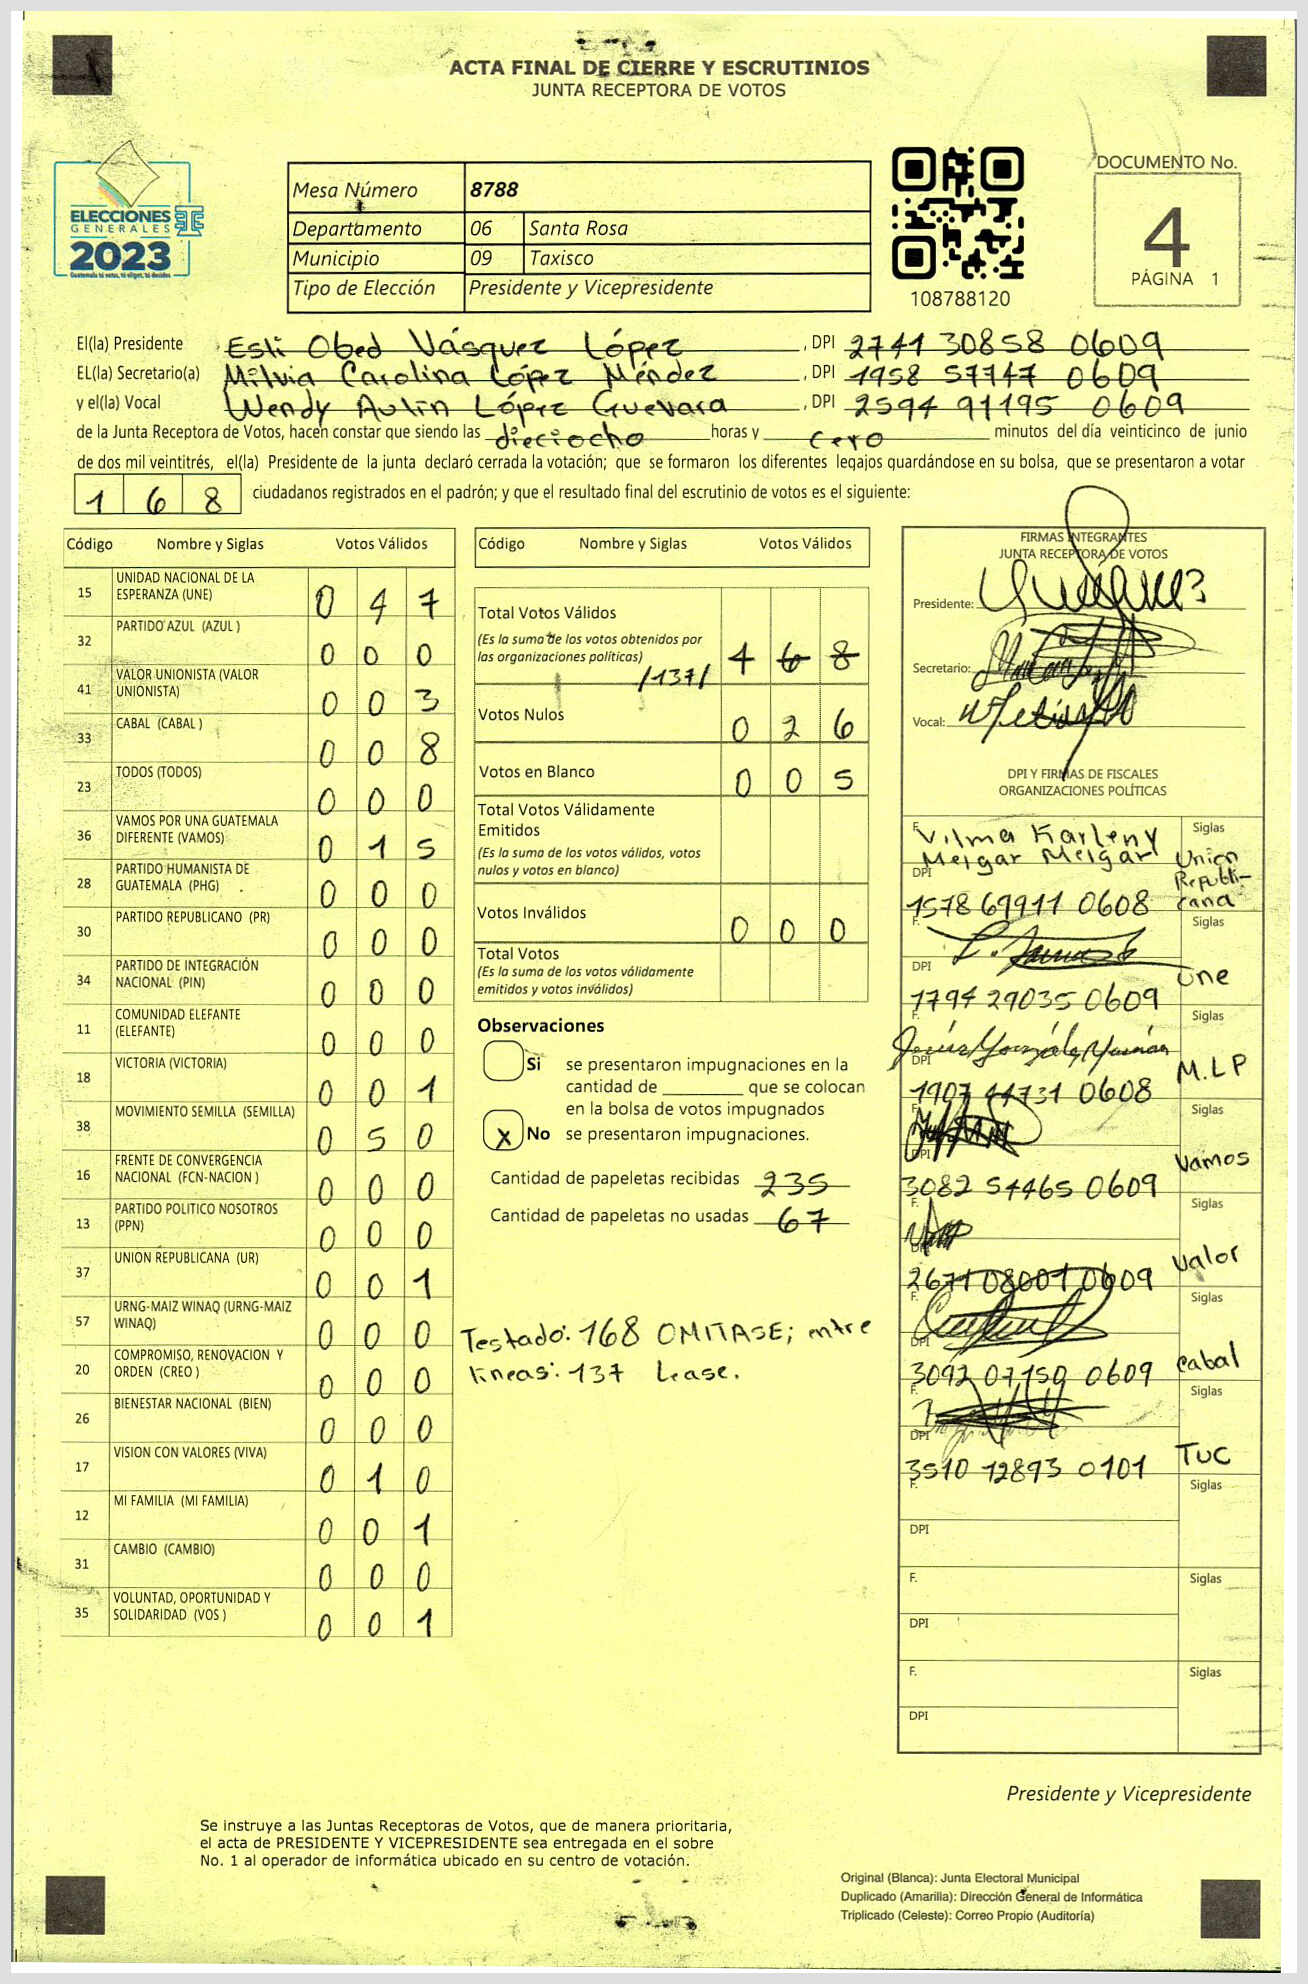 ACTA FINAL DE CIERRE Y ESCRUTINIOS
JUNTA RECEPTORA DE VOTOS
ELECCIONES
GENERALES
2023
Guatemala tú votas, tú eliges, tú decides
Mesa Número 8788
Departamento 06 Santa Rosa
Municipio 09 Taxisco
Tipo de Elección Presidente y Vicepresidente
108788120
DOCUMENTO No.
4
PÁGINA 1
El(la) Presidente Esli Obed Vásquez López, DPI 2741 30858 0609
EL(la) Secretario(a) Milvia Carolina López Méndez, DPI 1958 57747 0609
y el(la) Vocal Wendy Aulin López Guevara, DPI 2594 91195 0609
de la Junta Receptora de Votos, hacen constar que siendo las dieciocho horas y cero minutos del día veinticinco de junio
de dos mil veintitrés, el(la) Presidente de la junta declaró cerrada la votación; que se formaron los diferentes legajos guardándose en su bolsa, que se presentaron a votar
168 ciudadanos registrados en el padrón; y que el resultado final del escrutinio de votos es el siguiente:
Código Nombre y Siglas Votos Válidos
15 UNIDAD NACIONAL DE LA ESPERANZA (UNE) 0 4 7
32 PARTIDO AZUL (AZUL ) 0 0 0
41 VALOR UNIONISTA (VALOR UNIONISTA) 0 0 3
33 CABAL (CABAL ) 0 0 8
23 TODOS (TODOS) 0 0 0
36 VAMOS POR UNA GUATEMALA DIFERENTE (VAMOS) 0 1 5
28 PARTIDO HUMANISTA DE GUATEMALA (PHG) 0 0 0
30 PARTIDO REPUBLICANO (PR) 0 0 0
34 PARTIDO DE INTEGRACIÓN NACIONAL (PIN) 0 0 0
11 COMUNIDAD ELEFANTE (ELEFANTE) 0 0 0
18 VICTORIA (VICTORIA) 0 0 1
38 MOVIMIENTO SEMILLA (SEMILLA) 0 5 0
16 FRENTE DE CONVERGENCIA NACIONAL (FCN-NACION ) 0 0 0
13 PARTIDO POLITICO NOSOTROS (PPN) 0 0 0
37 UNION REPUBLICANA (UR) 0 0 1
57 URNG-MAIZ WINAQ (URNG-MAIZ WINAQ) 0 0 0
20 COMPROMISO, RENOVACION Y ORDEN (CREO ) 0 0 0
26 BIENESTAR NACIONAL (BIEN) 0 0 0
17 VISION CON VALORES (VIVA) 0 1 0
12 MI FAMILIA (MI FAMILIA) 0 0 1
31 CAMBIO (CAMBIO) 0 0 0
35 VOLUNTAD, OPORTUNIDAD Y SOLIDARIDAD (VOS ) 0 0 1
Código Nombre y Siglas Votos Válidos
Total Votos Válidos
(Es la suma de los votos obtenidos por
las organizaciones políticas) /137/ 1 6 8
Votos Nulos 0 2 6
Votos en Blanco 0 0 5
Total Votos Válidamente
Emitidos
(Es la suma de los votos válidos, votos
nulos y votos en blanco)
Votos Inválidos 0 0 0
Total Votos
(Es la suma de los votos válidamente
emitidos y votos inválidos)
Observaciones
Si se presentaron impugnaciones en la
cantidad de ________ que se colocan
en la bolsa de votos impugnados
X No se presentaron impugnaciones.
Cantidad de papeletas recibidas 235
Cantidad de papeletas no usadas 67
Testado: 168 OMITASE; entre
lineas: 137 Lease.
FIRMAS INTEGRANTES
JUNTA RECEPTORA DE VOTOS
Presidente:
Secretario:
Vocal:
DPI Y FIRMAS DE FISCALES
ORGANIZACIONES POLÍTICAS
F. Vilma Karleny Siglas
Melgar Melgar Union
DPI Republi-
1578 69911 0608 cana
F. Siglas
DPI Une
1794 29035 0609
F. Siglas
DPI M.L.P
1907 44731 0608
F. Siglas
DPI Vamos
3082 54465 0609
F. Siglas
DPI Valor
2671 08001 0609
F. Siglas
DPI Cabal
3092 07150 0609
F. Siglas
DPI TUC
3510 12893 0101
F. Siglas
DPI
F. Siglas
DPI
F. Siglas
DPI
Presidente y Vicepresidente
Se instruye a las Juntas Receptoras de Votos, que de manera prioritaria,
el acta de PRESIDENTE Y VICEPRESIDENTE sea entregada en el sobre
No. 1 al operador de informática ubicado en su centro de votación.
Original (Blanca): Junta Electoral Municipal
Duplicado (Amarilla): Dirección General de Informática
Triplicado (Celeste): Correo Propio (Auditoría)